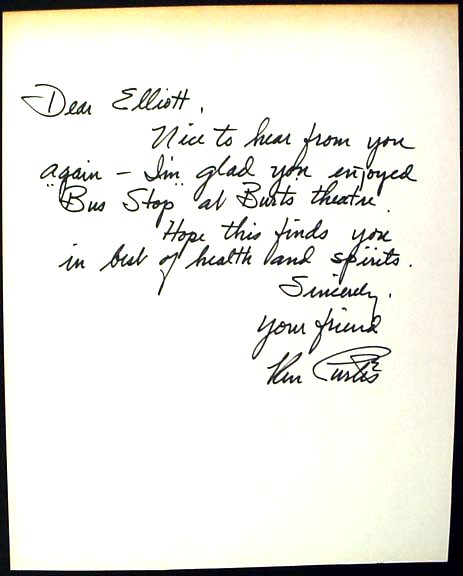 Dear Elliott,
Nice to hear from you
again – I'm glad you enjoyed
"Bus Stop" at Burts theatre.
Hope this finds you
in best of health and spirits.
Sincerely,
your friend
Ken Curtis